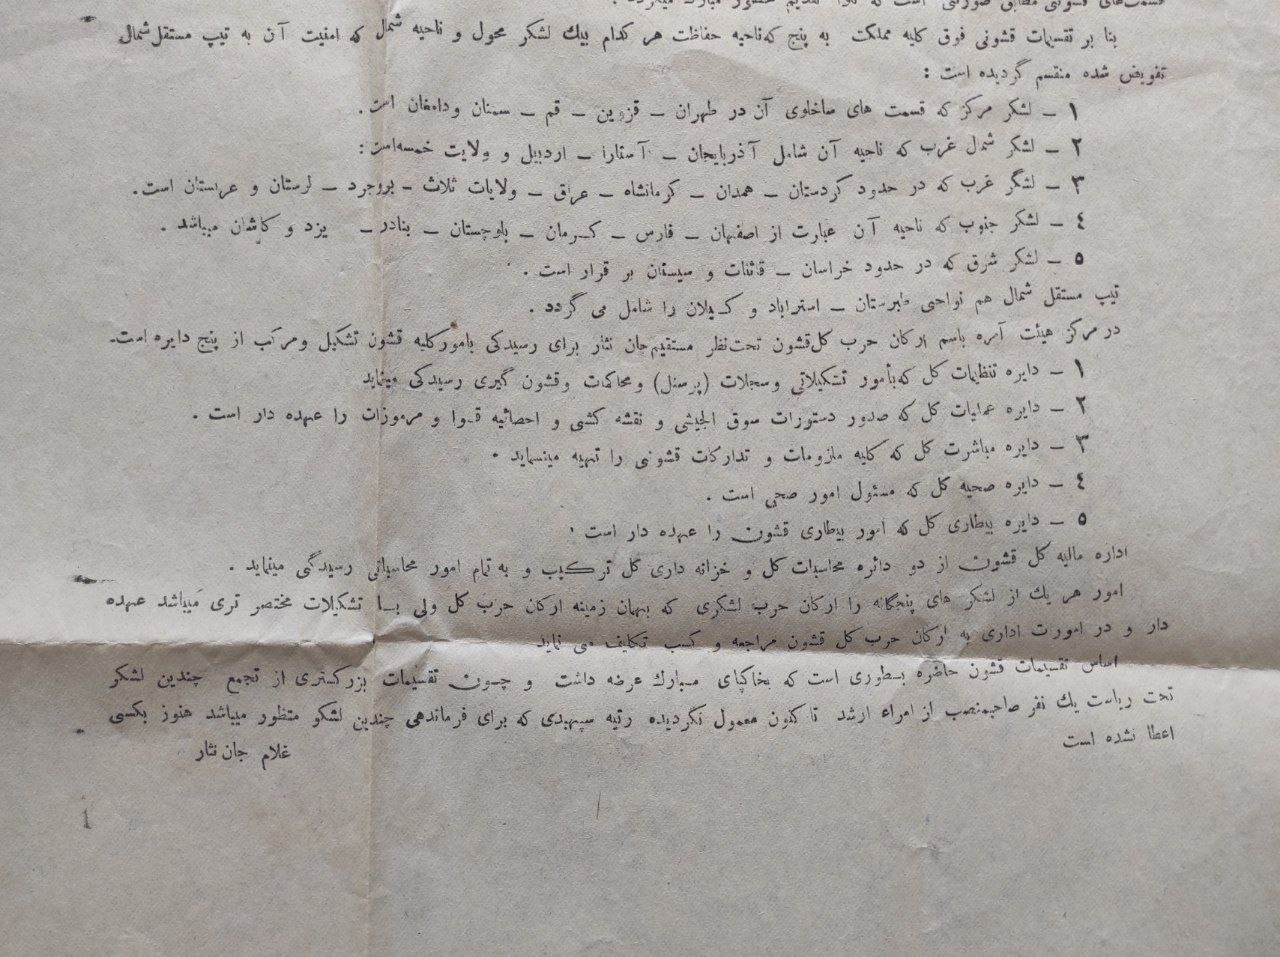 قسمت‌های قشونی مطابق صورتی است که
بنا بر تقسیمات قشونی فوق کلیه مملکت به پنج که‌ناحیه حفاظت هر کدام بیك لشکر محول و ناحیه شمال که امنیت آن به تیپ مستقل شمال
تفویض شده منقسم گردیده است :
۱ – لشکر مرکز که قسمت های ساخلوی آن در طهران – قزوین – قم – سمنان ودامغان است .
۲ – لشکر شمال غرب که ناحیه آن شامل آذربایجان – آستارا – اردبیل و ولایت خمسه‌است :
۳ – لشگر غرب که در حدود کردستان – همدان – کرمانشاه – عراق – ولایات ثلاث – بروجرد – لرستان و عربستان است.
٤ – لشکر جنوب که ناحیه آن عبارت از اصفهان – فارس – کرمان – بلوچستان – بنادر – یزد و کاشان میباشد .
۵ – لشکر شرق که در حدود خراسان – قائنات و سیستان بر قرار است .
تیپ مستقل شمال هم نواحی طبرستان – استراباد و گیلان را شامل می گردد .
در مرکز هیئت آمره باسم ارکان حرب کل‌قشون تحت‌نظر مستقیم‌جان نثار برای رسیدکی بامورکلیه قشون تشکیل ومرکب از پنج دایره است.
۱ – دایره تنظیمات کل که‌بأمور تشکیلاتی وسجلات (پرسنل) ومحاکمات وقشون گیری رسیدکی مینماید
۲ – دایره عملیات کل که صدور دستورات سوق الجیشی و نقشه کشی و احصائیه قوا و مرموزات را عهده دار است .
۳ – دایره مباشرت کل که کلیه ملزومات و تدارکات قشونی را تهیه مینماید .
٤ – دایره صحیه کل که مسئول امور صحی است .
۵ – دایره بیطاری کل که امور بیطاری قشون را عهده دار است .
اداره مالیه کل قشون از دو دائره محاسبات کل و خزانه داری کل ترکیب و به تمام امور محاسباتی رسیدگی مینماید .
امور هر یك از لشکر های پنجگانه را ارکان حرب لشکری که بهمان زمینه ارکان حرب کل ولی با تشکیلات مختصر تری میباشد عهده
دار و در امورت اداری به ارکان حرب کل قشون مراجعه و کسب تکلیف می نماید
اساس تقسیمات قشون حاضره بطوری است که بخاکپای مبارك عرضه داشت و چون تقسیمات بزرگتری از تجمع چندین لشکر
تحت ریاست یك نفر صاحبمنصب از امراء ارشد تا کنون معمول نگردیده رتبه سپهبدی که برای فرماندهی چندین لشکو منظور میباشد هنوز بکسی
اعطا نشده است
غلام جان نثار